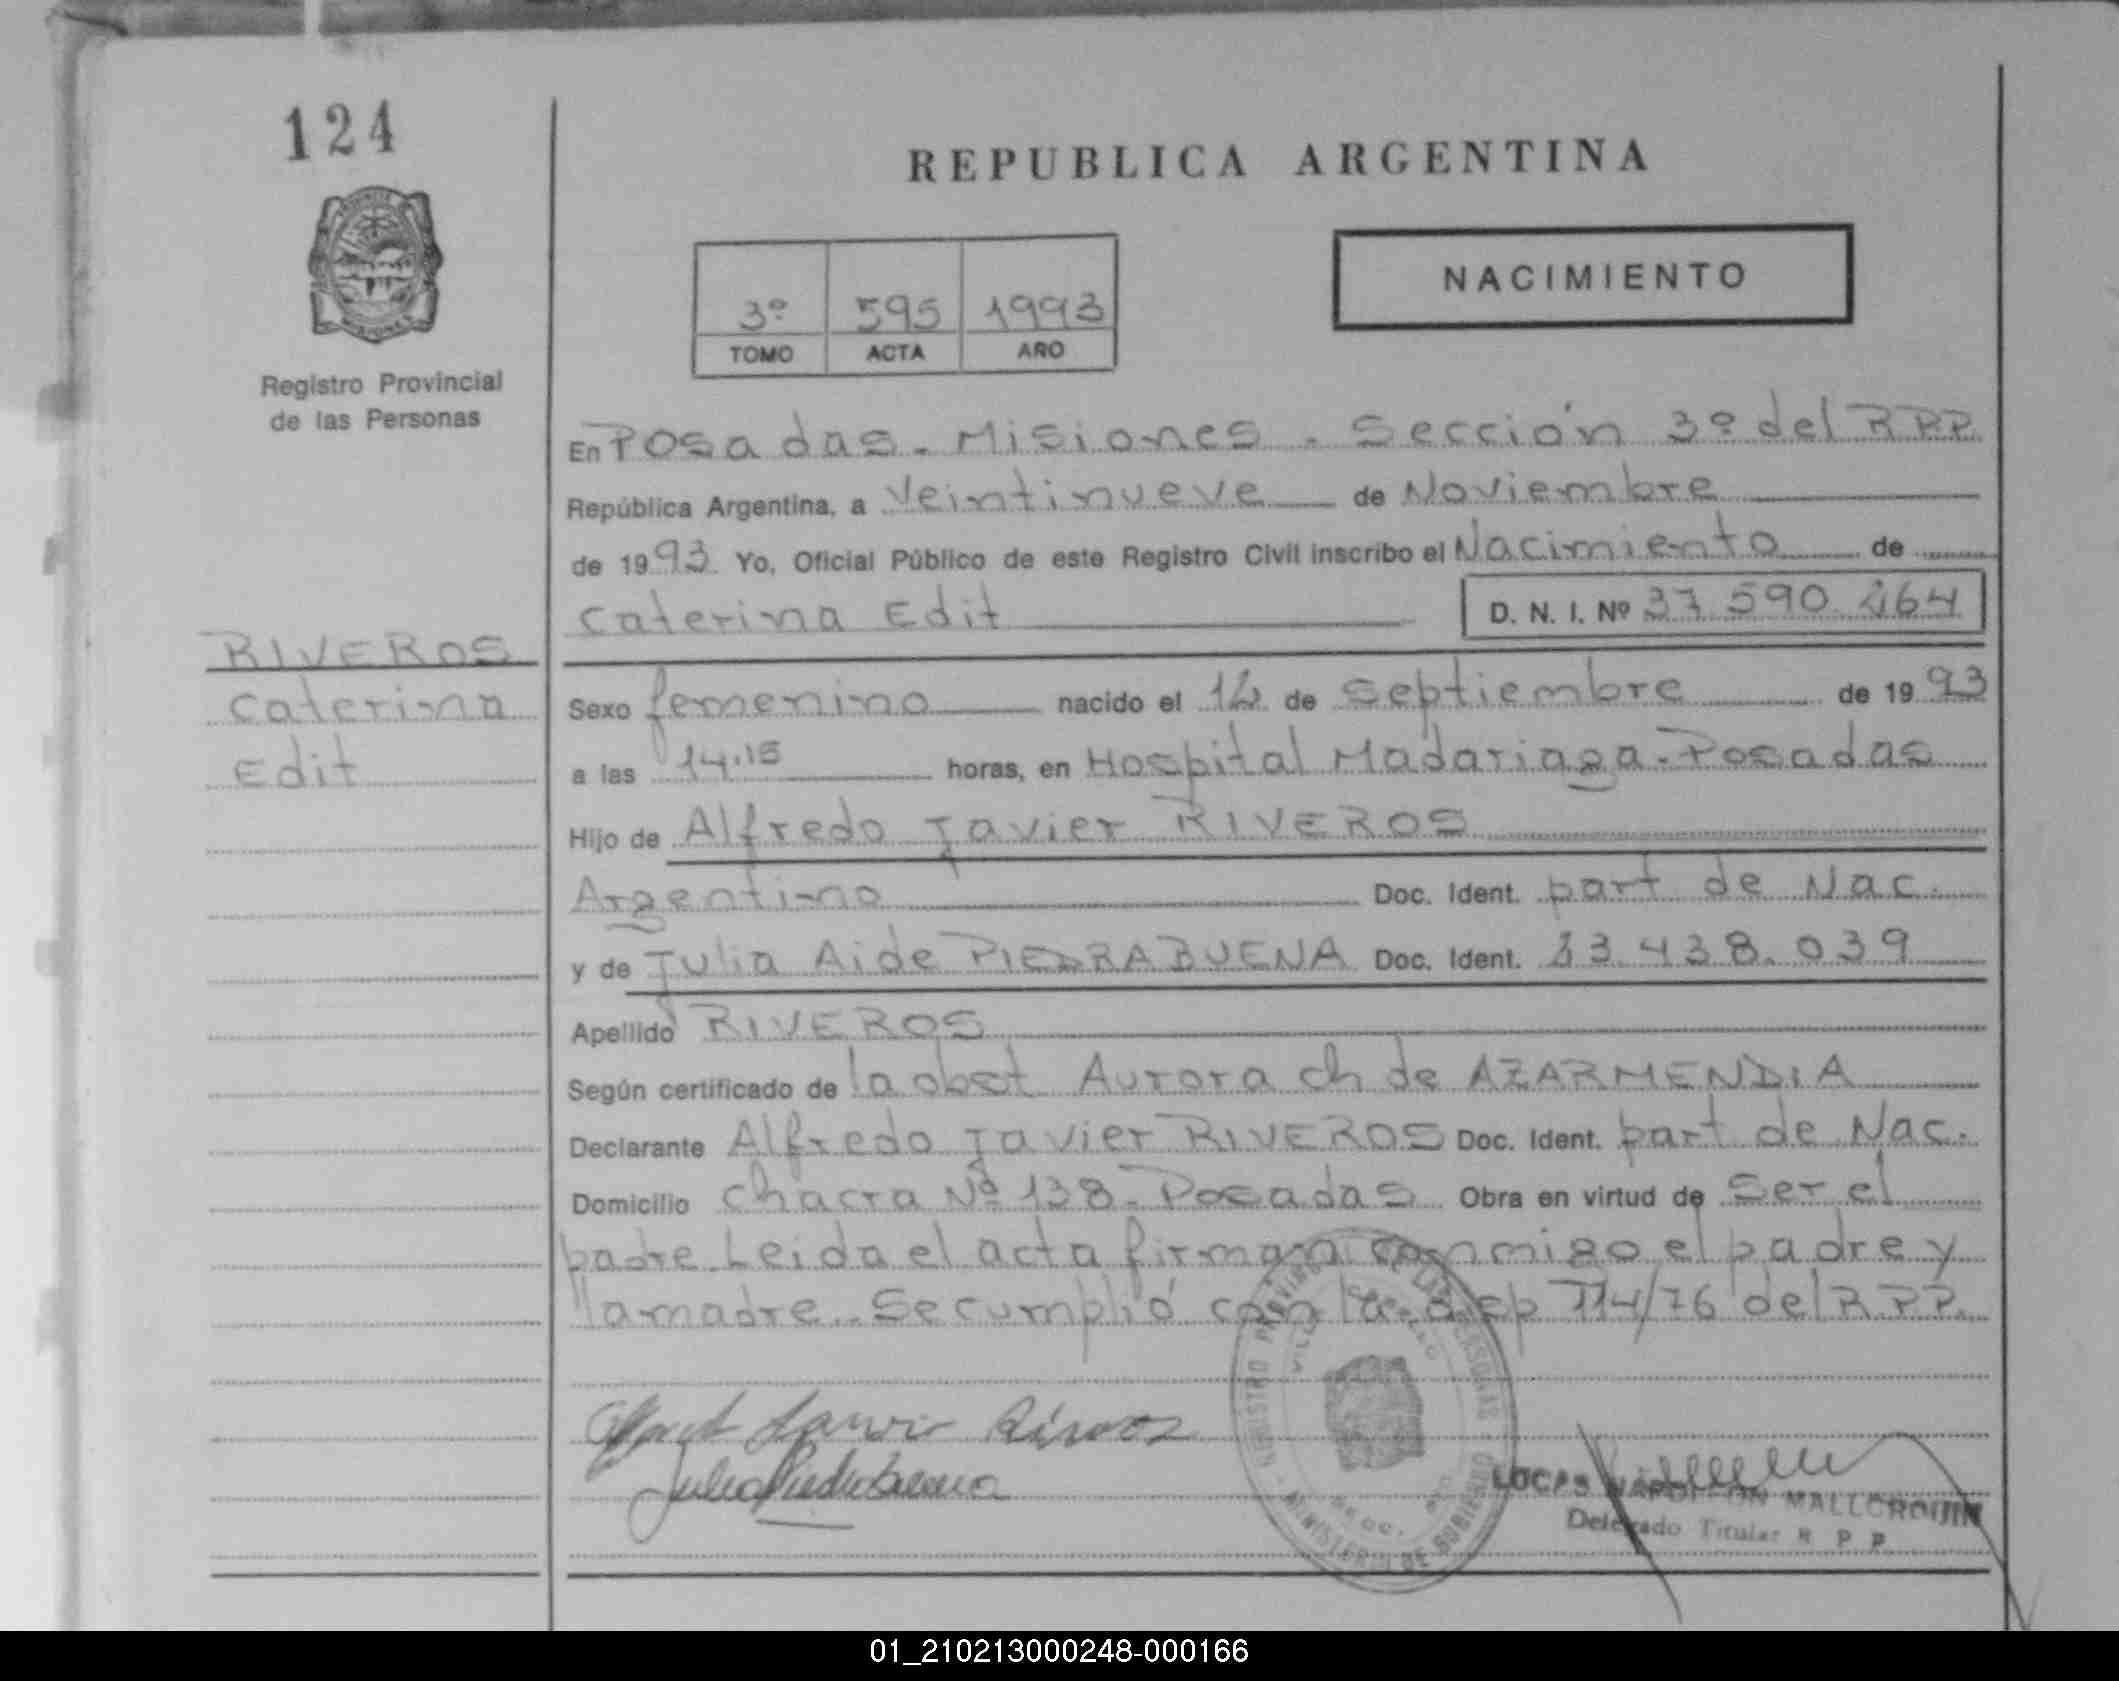 124
REPUBLICA ARGENTINA
NACIMIENTO
3º 595 1993
TOMO ACTA AÑO
Registro Provincial
de las Personas
En Posadas - Misiones - Sección 3º del RPP.
República Argentina, a Veintinueve de Noviembre
de 1993 Yo, Oficial Público de este Registro Civil inscribo el Nacimiento de
Caterina Edit D. N. I. Nº 37.590.464
RIVEROS
Caterina
Edit
Sexo femenino nacido el de Septiembre de 1993
a las 14.15 horas, en Hospital Madariaga - Posadas
Hijo de Alfredo Javier RIVEROS
Argentino Doc. Ident. part de Nac.
y de Julia Aide PIEDRABUENA Doc. Ident. 13.438.039
Apellido RIVEROS
Según certificado de la obst Aurora ch de AZARMENDIA
Declarante Alfredo Javier RIVEROS Doc. Ident. part de Nac.
Domicilio Chacra Nº 138 - Posadas Obra en virtud de Ser el
padre. Leida el acta firman conmigo el padre y
la madre. Se cumplió con la disp 114/76 del R.P.P.
Javier Riveros
Julia Piedrabuena
REGISTRO PROVINCIAL DE LAS PERSONAS
MINISTERIO DE GOBIERNO
LUCAS NAPOLEON MALLORQUIN
Delegado Titular R P P
01_210213000248-000166